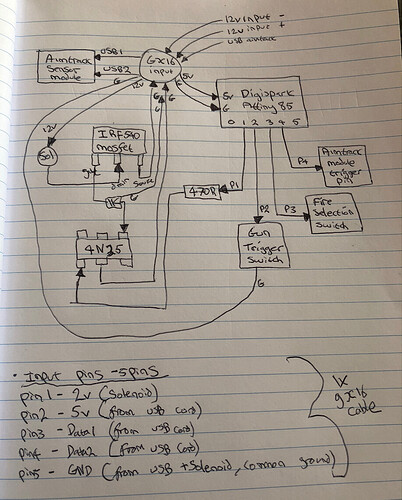 12v input -
12v input +
USB aimtrack
Aimtrack
Sensor
module
USB1
USB2
G
12v
GX16
input
5v
G
G
G
5v
G
Digispark
Attiny 85
0 1 2 3 4 5
12v
Sol
IRF540
mosfet
gate
drain
Source
G
1K
470R
P1
P2
P3
P4
Aimtrack
module
trigger
pin
Fire
Selection
Switch
4N25
Gun
Trigger
Switch
G
• Input pins - 5pins
pin1 - 2v (Solenoid)
pin2 - 5v (from usb card)
pin3 - Data1 (from usb card)
pin4 - Data2 (from usb card)
pin5 - GND (from usb + Solenoid, common ground)
1x
gx16
cable